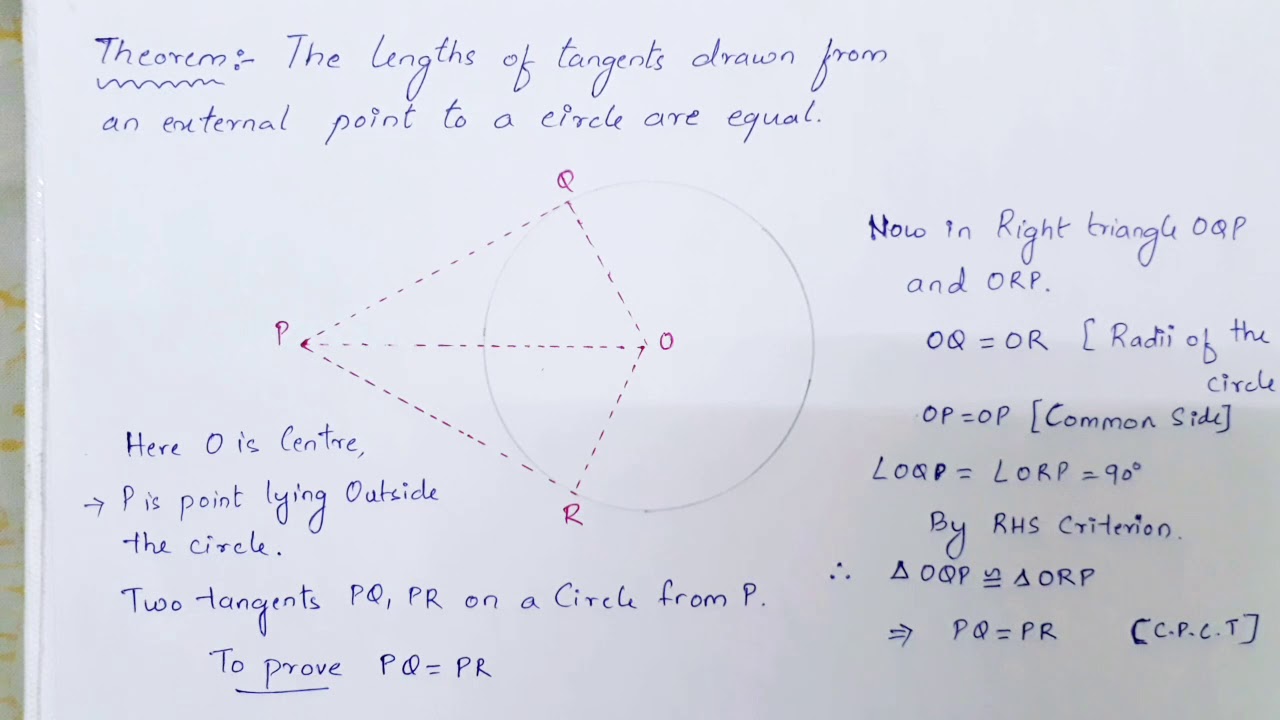 Theorem:- The lengths of tangents drawn from
an external point to a circle are equal.
Q
P
O
R
Here O is Centre,
→ P is point lying Outside
the circle.
Two tangents PQ, PR on a Circle from P.
To prove PQ = PR
Now in Right triangle OQP
and ORP.
OQ = OR [Radii of the
circle
OP = OP [Common Side]
∠OQP = ∠ORP = 90°
By RHS Criterion.
∴ ΔOQP ≅ ΔORP
⇒ PQ = PR [C.P.C.T]